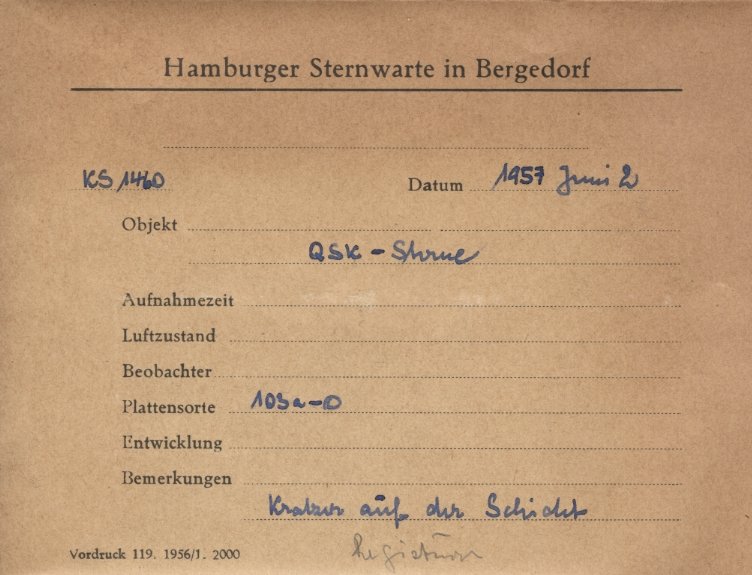 Hamburger Sternwarte in Bergedorf
KS 1460 Datum 1957 Juni 2
Objekt
QSK - Sterne
Aufnahmezeit
Luftzustand
Beobachter
Plattensorte 103a-O
Entwicklung
Bemerkungen
Kratzer auf der Schicht
Vordruck 119. 1956/1. 2000